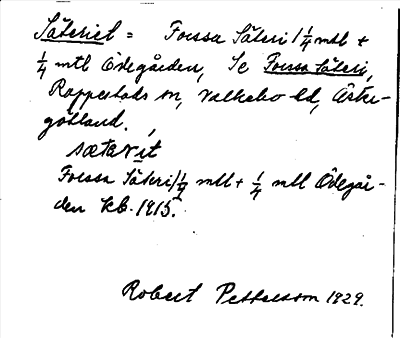 Säteriet = Forssa Säteri 1/4 mtl +
1/4 mtl Ödegården, Se Forssa Säteri,
Rappestads sn, Valkebo hd, Öster-
götland.
sætarıt
Forssa Säteri 1/4 mtl + 1/4 mtl Ödegår-
den kb. 1915.
Robert Pettersson 1929.